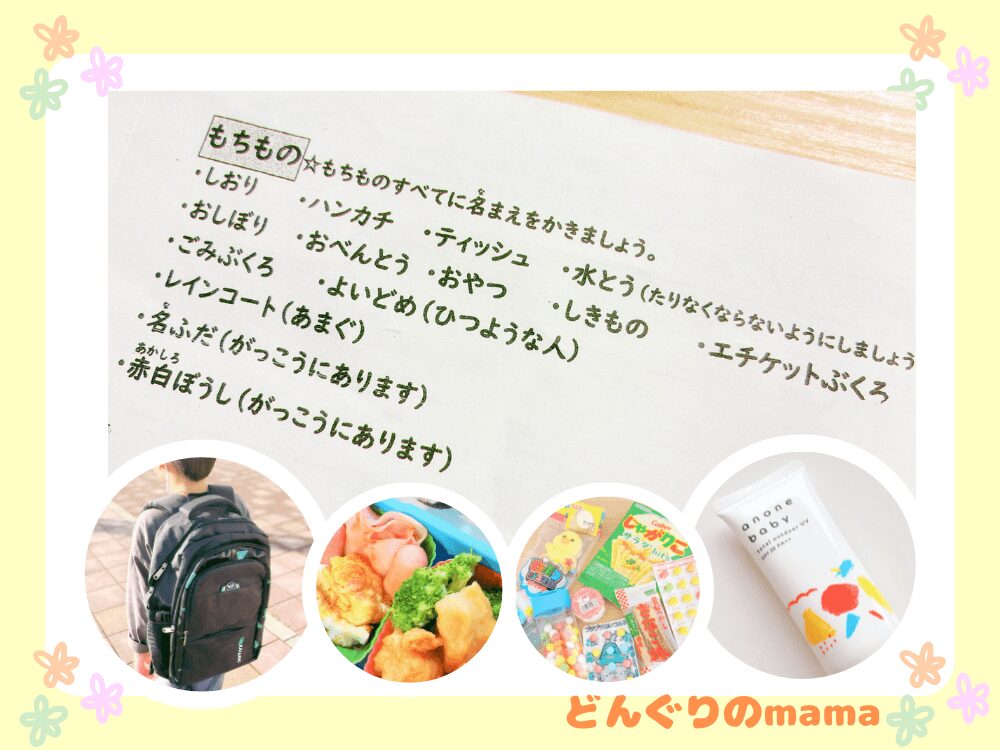 もちもの ☆もちものすべてに名まえをかきましょう。
・しおり ・ハンカチ ・ティッシュ ・水とう(たりなくならないようにしましょう
・おしぼり ・おべんとう ・おやつ ・しきもの ・エチケットぶくろ
・ごみぶくろ ・よいどめ(ひつような人)
・レインコート(あまぐ)
・名ふだ(がっこうにあります)
・赤白ぼうし(がっこうにあります)
Calbee
じゃがりこ
サラダ bits
anone
baby
total outdoor UV
どんぐりのmama